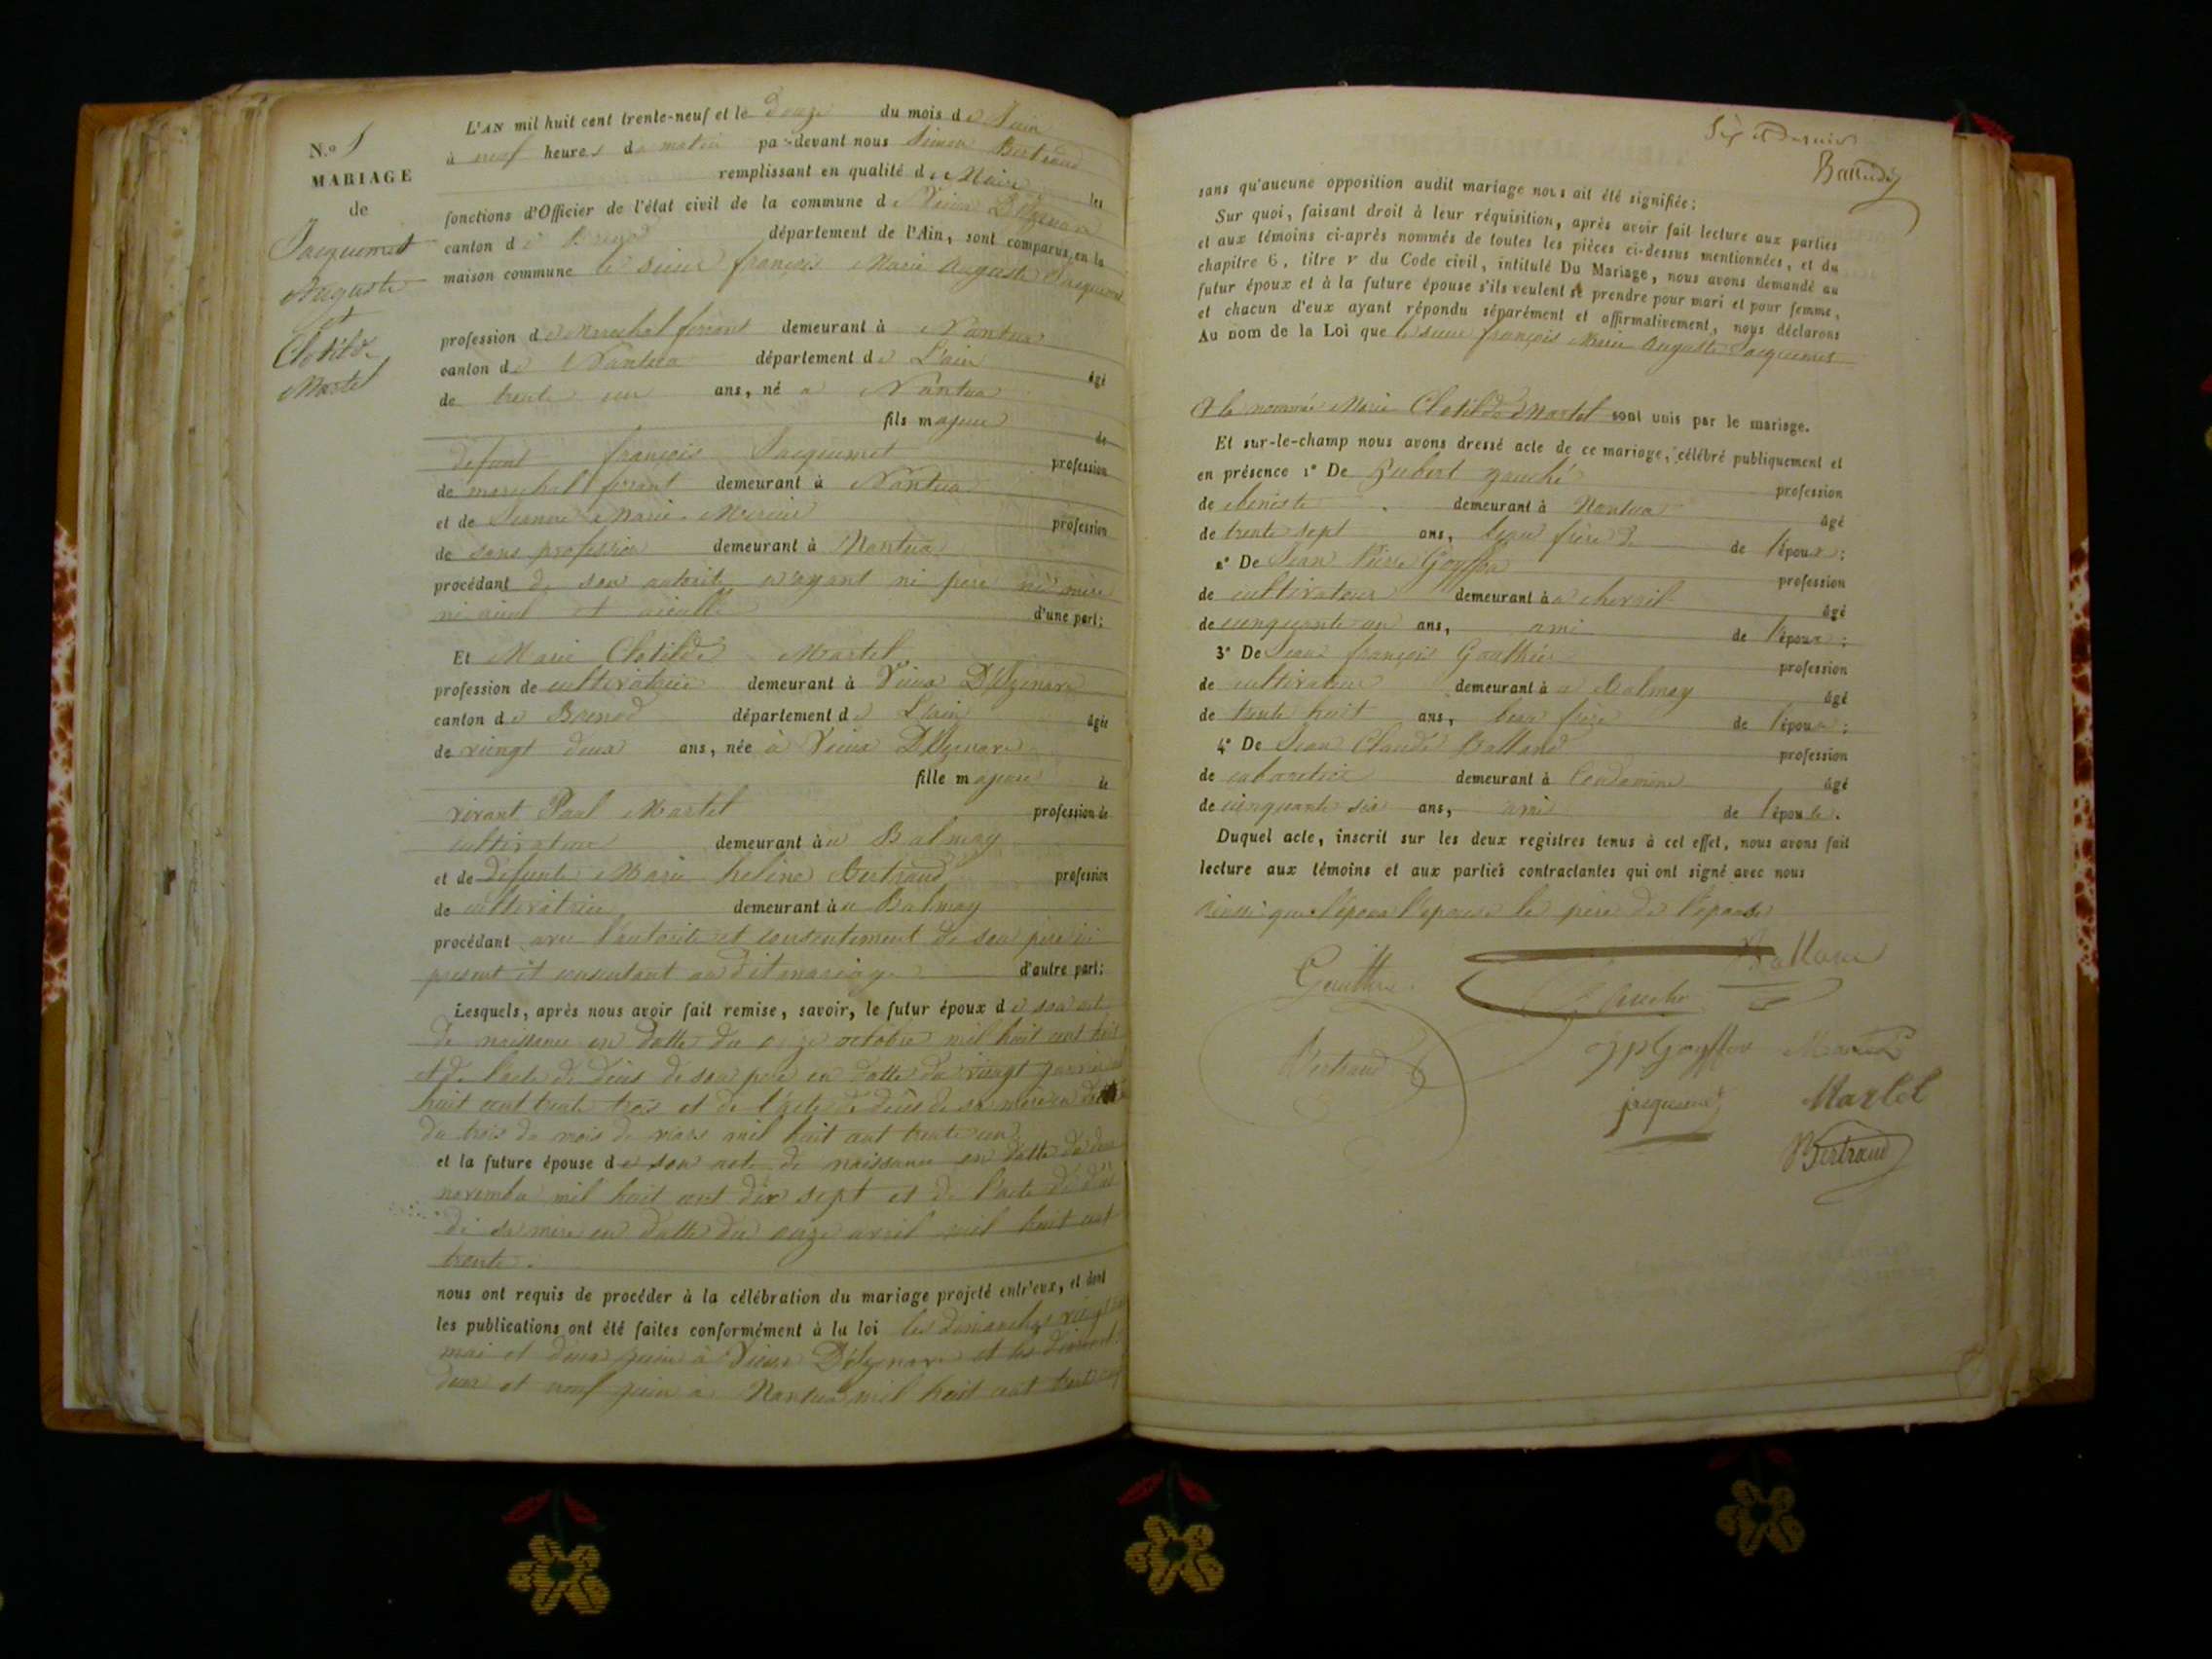 N.º 5
MARIAGE
de
Jacquemet
Auguste
et
Clotilde
Martel
L'AN mil huit cent trente-neuf et le douze du mois de Juin
à neuf heures du matin par-devant nous Simon Bertrand
remplissant en qualité de Maire les
fonctions d'Officier de l'état civil de la commune de Vieux D'Izenave
canton de Brenod département de l'Ain, sont comparus en la
maison commune le sieur françois Marie Auguste Jacquemet
profession de Marechal ferrant demeurant à Nantua
canton de Nantua département de L'ain âgé
de trente un ans, né a Nantua
fils majeur de
defunt françois Jacquemet profession
de marechal ferrant demeurant à Nantua
et de Jeanne Marie Mercier profession
de sans profession demeurant à Nantua
procédant de son autorité n'ayant ni père ni mère
ni aieul et aieulle d'une part;
Et Marie Clotilde Martel
profession de cultivatrice demeurant à Vieux D'Izenave
canton de Brenod département de L'ain âgée
de vingt deux ans, née à Vieux D'Izenave
fille majeure de
vivant Paul Martel profession de
cultivateur demeurant à u Balmay
et de defunte Marie heline Bertrand profession
de cultivatrice demeurant à u Balmay
procédant avec l'autorité et consentement de son père ici
present et consentant au dit mariage d'autre part;
Lesquels, après nous avoir fait remise, savoir, le futur époux de son act
de naissance en datte du onze octobre mil huit cent huit
et de l'acte de déces de son pere en datte du vingt janvier mil
huit cent trente trois et de l'acte de déces de sa mère en datte
du trois du mois de mars mil huit cent trente un
et la future épouse de son acte de naissance en datte du deux
novembre mil huit cent dix sept et de l'acte de décè
de sa mère en datte du onze avril mil huit cent
trente.
nous ont requis de procéder à la célébration du mariage projeté entr'eux, et dont
les publications ont été faites conformément à la loi les dimanches vingt six
mai et deux juin à Vieux D'Izenave et les dimanches
deux et neuf juin à Nantua mil huit cent trente neuf
Six et dernier
sans qu'aucune opposition audit mariage nous ait été signifiée;
Sur quoi, faisant droit à leur réquisition, après avoir fait lecture aux parties
et aux témoins ci-après nommés de toutes les pièces ci-dessus mentionnées, et du
chapitre 6, titre V du Code civil, intitulé Du Mariage, nous avons demandé au
futur époux et à la future épouse s'ils veulent se prendre pour mari et pour femme,
et chacun d'eux ayant répondu séparément et affirmativement, nous déclarons
Au nom de la Loi que le sieur françois Marie Auguste Jacquemet
Et la nommée Marie Clotilde Martel sont unis par le mariage.
Et sur-le-champ nous avons dressé acte de ce mariage, célébré publiquement et
en présence 1º De Hubert gauché profession
de ebeniste demeurant à Nantua âgé
de trente sept ans, beau frère de l'époux;
2º De Jean Pierre Goyffon profession
de cultivateur demeurant à a chevril âgé
de cinquante un ans, ami de l'époux;
3º De Jean françois Gauthier profession
de cultivateur demeurant à u Balmay âgé
de trente huit ans, beau frère de l'épouse;
4º De Jean Claude Balland profession
de cabaretier demeurant à Condamine âgé
de cinquante six ans, ami de l'épouse.
Duquel acte, inscrit sur les deux registres tenus à cet effet, nous avons fait
lecture aux témoins et aux parties contractantes qui ont signé avec nous
ainsi que l'époux l'épouse le père de l'épouse
Gauthier
Balland
Gauché
Bertrand
jpGoyffon
Martel
jacquemet
Martel
Bertrand